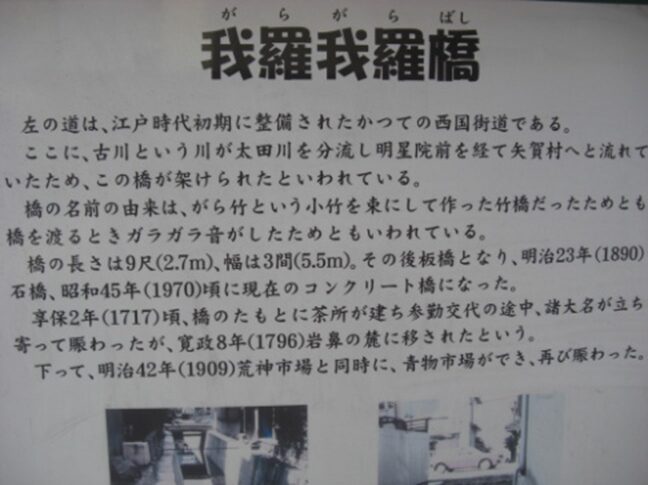 がらがらばし
我羅我羅橋
左の道は、江戸時代初期に整備されたかつての西国街道である。
ここに、古川という川が太田川を分流し明星院前を経て矢賀村へと流れて
いたため、この橋が架けられたといわれている。
橋の名前の由来は、がら竹という小竹を束にして作った竹橋だったためとも
橋を渡るときガラガラ音がしたためともいわれている。
橋の長さは9尺(2.7m)、幅は3間(5.5m)。その後板橋となり、明治23年(1890)
石橋、昭和45年(1970)頃に現在のコンクリート橋になった。
享保2年(1717)頃、橋のたもとに茶所が建ち参勤交代の途中、諸大名が立ち
寄って賑わったが、寛政8年(1796)岩鼻の麓に移されたという。
下って、明治42年(1909)荒神市場と同時に、青物市場ができ、再び賑わった。